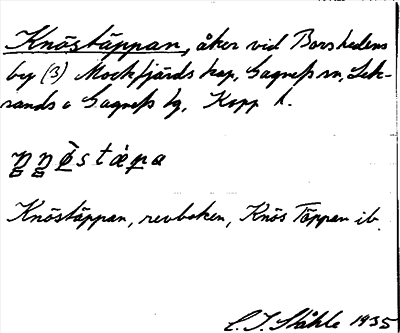 Knöstäppan, åker vid Borshedens
by (3) Mockfjärds kap, Gagnefs sn, Lek-
sands o Gagnefs tg, Kopp l.
Knöstäppan, revboken, Knös Täppan ib.
C. I. Ståhle 1935